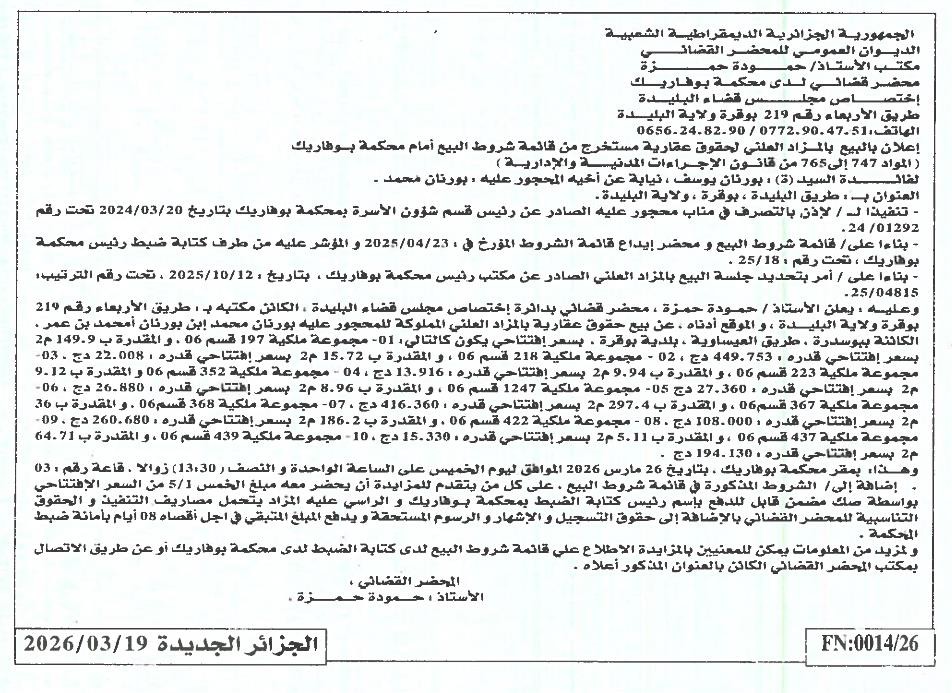 الجمهورية الجزائرية الديمقراطية الشعبية
الديوان العمومي للمحضر القضائي
مكتب الأستاذ/ حمودة حمزة
محضر قضائي لدى محكمة بوفاريك
إختصاص مجلس قضاء البليدة
طريق الأربعاء رقم 219 بوقرة ولاية البليدة
الهاتف: 0772.90.47.51 / 0656.24.82.90
إعلان بالبيع بالمزاد العلني لحقوق عقارية مستخرج من قائمة شروط البيع أمام محكمة بوفاريك
( المواد 747 إلى 765 من قانون الإجراءات المدنية والإدارية )
لفائدة السيد (ة) : بورنان يوسف ، نيابة عن أخيه المحجور عليه : بورنان محمد .
العنوان ب : طريق البليدة ، بوقرة ، ولاية البليدة.
- تنفيذا لـ / لإذن بالتصرف في مناب محجور عليه الصادر عن رئيس قسم شؤون الأسرة بمحكمة بوفاريك بتاريخ 2024/03/20 تحت رقم
24/01292 .
- بناءا على/ قائمة شروط البيع و محضر إيداع قائمة الشروط المؤرخ في : 2025/04/23 و المؤشر عليه من طرف كتابة ضبط رئيس محكمة
بوفاريك ، تحت رقم : 25/18 .
- بناءا على / أمر بتحديد جلسة البيع بالمزاد العلني الصادر عن مكتب رئيس محكمة بوفاريك ، بتاريخ : 2025/10/12 ، تحت رقم الترتيب:
25/04815.
وعليه : يعلن الأستاذ / حمودة حمزة ، محضر قضائي بدائرة إختصاص مجلس قضاء البليدة ، الكائن مكتبه ب : طريق الأربعاء رقم 219
بوقرة ولاية البليدة ، و الموقع أدناه ، عن بيع حقوق عقارية بالمزاد العلني المملوكة للمحجور عليه بورنان محمد إبن بورنان أمحمد بن عمر ،
الكائنة ببوسدرة ، طريق العيساوية ، بلدية بوقرة . بسعر إفتتاحي يكون كالتالي: 01- مجموعة ملكية 197 قسم 06 ، و المقدرة ب 149.9 م2
بسعر إفتتاحي قدره : 449.753 دج ، 02 - مجموعة ملكية 218 قسم 06 و المقدرة ب 15.72 م2 بسعر إفتتاحي قدره : 22.008 دج ، 03-
مجموعة ملكية 223 قسم 06 و المقدرة ب 9.94 م2 بسعر إفتتاحي قدره : 13.916 دج ، 04 - مجموعة ملكية 352 قسم 06 و المقدرة ب 9.12
م2 بسعر إفتتاحي قدره : 27.360 دج 05- مجموعة ملكية 1247 قسم 06 ، و المقدرة ب 8.96 م2 بسعر إفتتاحي قدره : 26.880 دج ، 06-
مجموعة ملكية 367 قسم06 ، و المقدرة ب 297.4 م2 بسعر إفتتاحي قدره : 416.360 دج ، 07- مجموعة ملكية 368 قسم06 ، و المقدرة ب 36
م2 بسعر إفتتاحي قدره : 108.000 دج ، 08 - مجموعة ملكية 422 قسم 06 ، و المقدرة ب 186.2 م2 بسعر إفتتاحي قدره : 260.680 دج ، 09-
مجموعة ملكية 437 قسم 06 و المقدرة ب 5.11 م2 بسعر إفتتاحي قدره : 15.330 دج ، 10- مجموعة ملكية 439 قسم 06 ، و المقدرة ب 64.71
م2 بسعر إفتتاحي قدره : 194.130 دج .
وهذا : بمقر محكمة بوفاريك ، بتاريخ 26 مارس 2026 الموافق ليوم الخميس على الساعة الواحدة و النصف (13:30) زوالا . قاعة رقم : 03
. إضافة إلى/ الشروط المذكورة في قائمة شروط البيع ، على كل من يتقدم للمزايدة أن يحضر معه مبلغ الخمس 5/1 من السعر الإفتتاحي
بواسطة صك مضمن قابل للدفع بإسم رئيس كتابة الضبط بمحكمة بوفاريك و الراسي عليه المزاد يتحمل مصاريف التنفيذ و الحقوق
التناسبية للمحضر القضائي بالإضافة إلى حقوق التسجيل و الإشهار و الرسوم المستحقة و يدفع المبلغ المتبقي في اجل أقصاه 08 أيام بأمانة ضبط
المحكمة .
و لمزيد من المعلومات يمكن للمعنيين بالمزايدة الاطلاع على قائمة شروط البيع لدى كتابة الضبط لدى محكمة بوفاريك أو عن طريق الاتصال
بمكتب المحضر القضائي الكائن بالعنوان المذكور أعلاه .
المحضر القضائي ،
الأستاذ : حمودة حمزة .
الجزائر الجديدة 2026/03/19
FN:0014/26